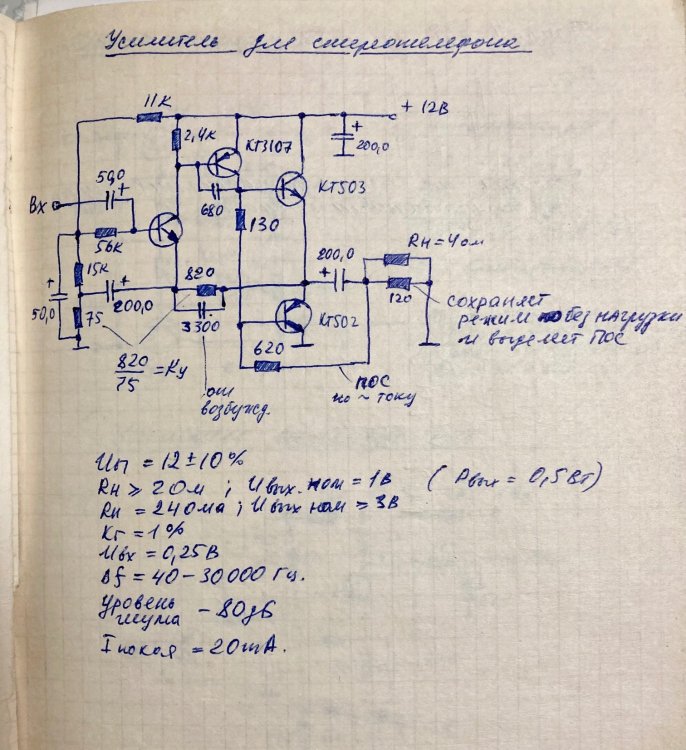 Усилитель для стереотелефона
11к
+ 12В
2,4к
КТ3107
+
200,0
50,0
+
КТ503
Вх
680
130
56к
Rн = 4 ом
15к
+
820
200,0
+
+
50,0
200,0
120
сохраняет
режим без нагрузки
и выделяет ПОС
75
3300
КТ502
620
820
75 = Ку
от
возбужд.
ПОС
по ~ току
Uп = 12 ± 10%
Rн ≥ 2 Ом ; U вых. ном = 1В ( Рвых = 0,5 Вт)
Rн = 24 Ома ; U вых ном ≥ 3В
Кг = 1%
Uвх = 0,25В
Δf = 40 – 30000 Гц.
Уровень
шума – 80дб
I покоя = 20mA.